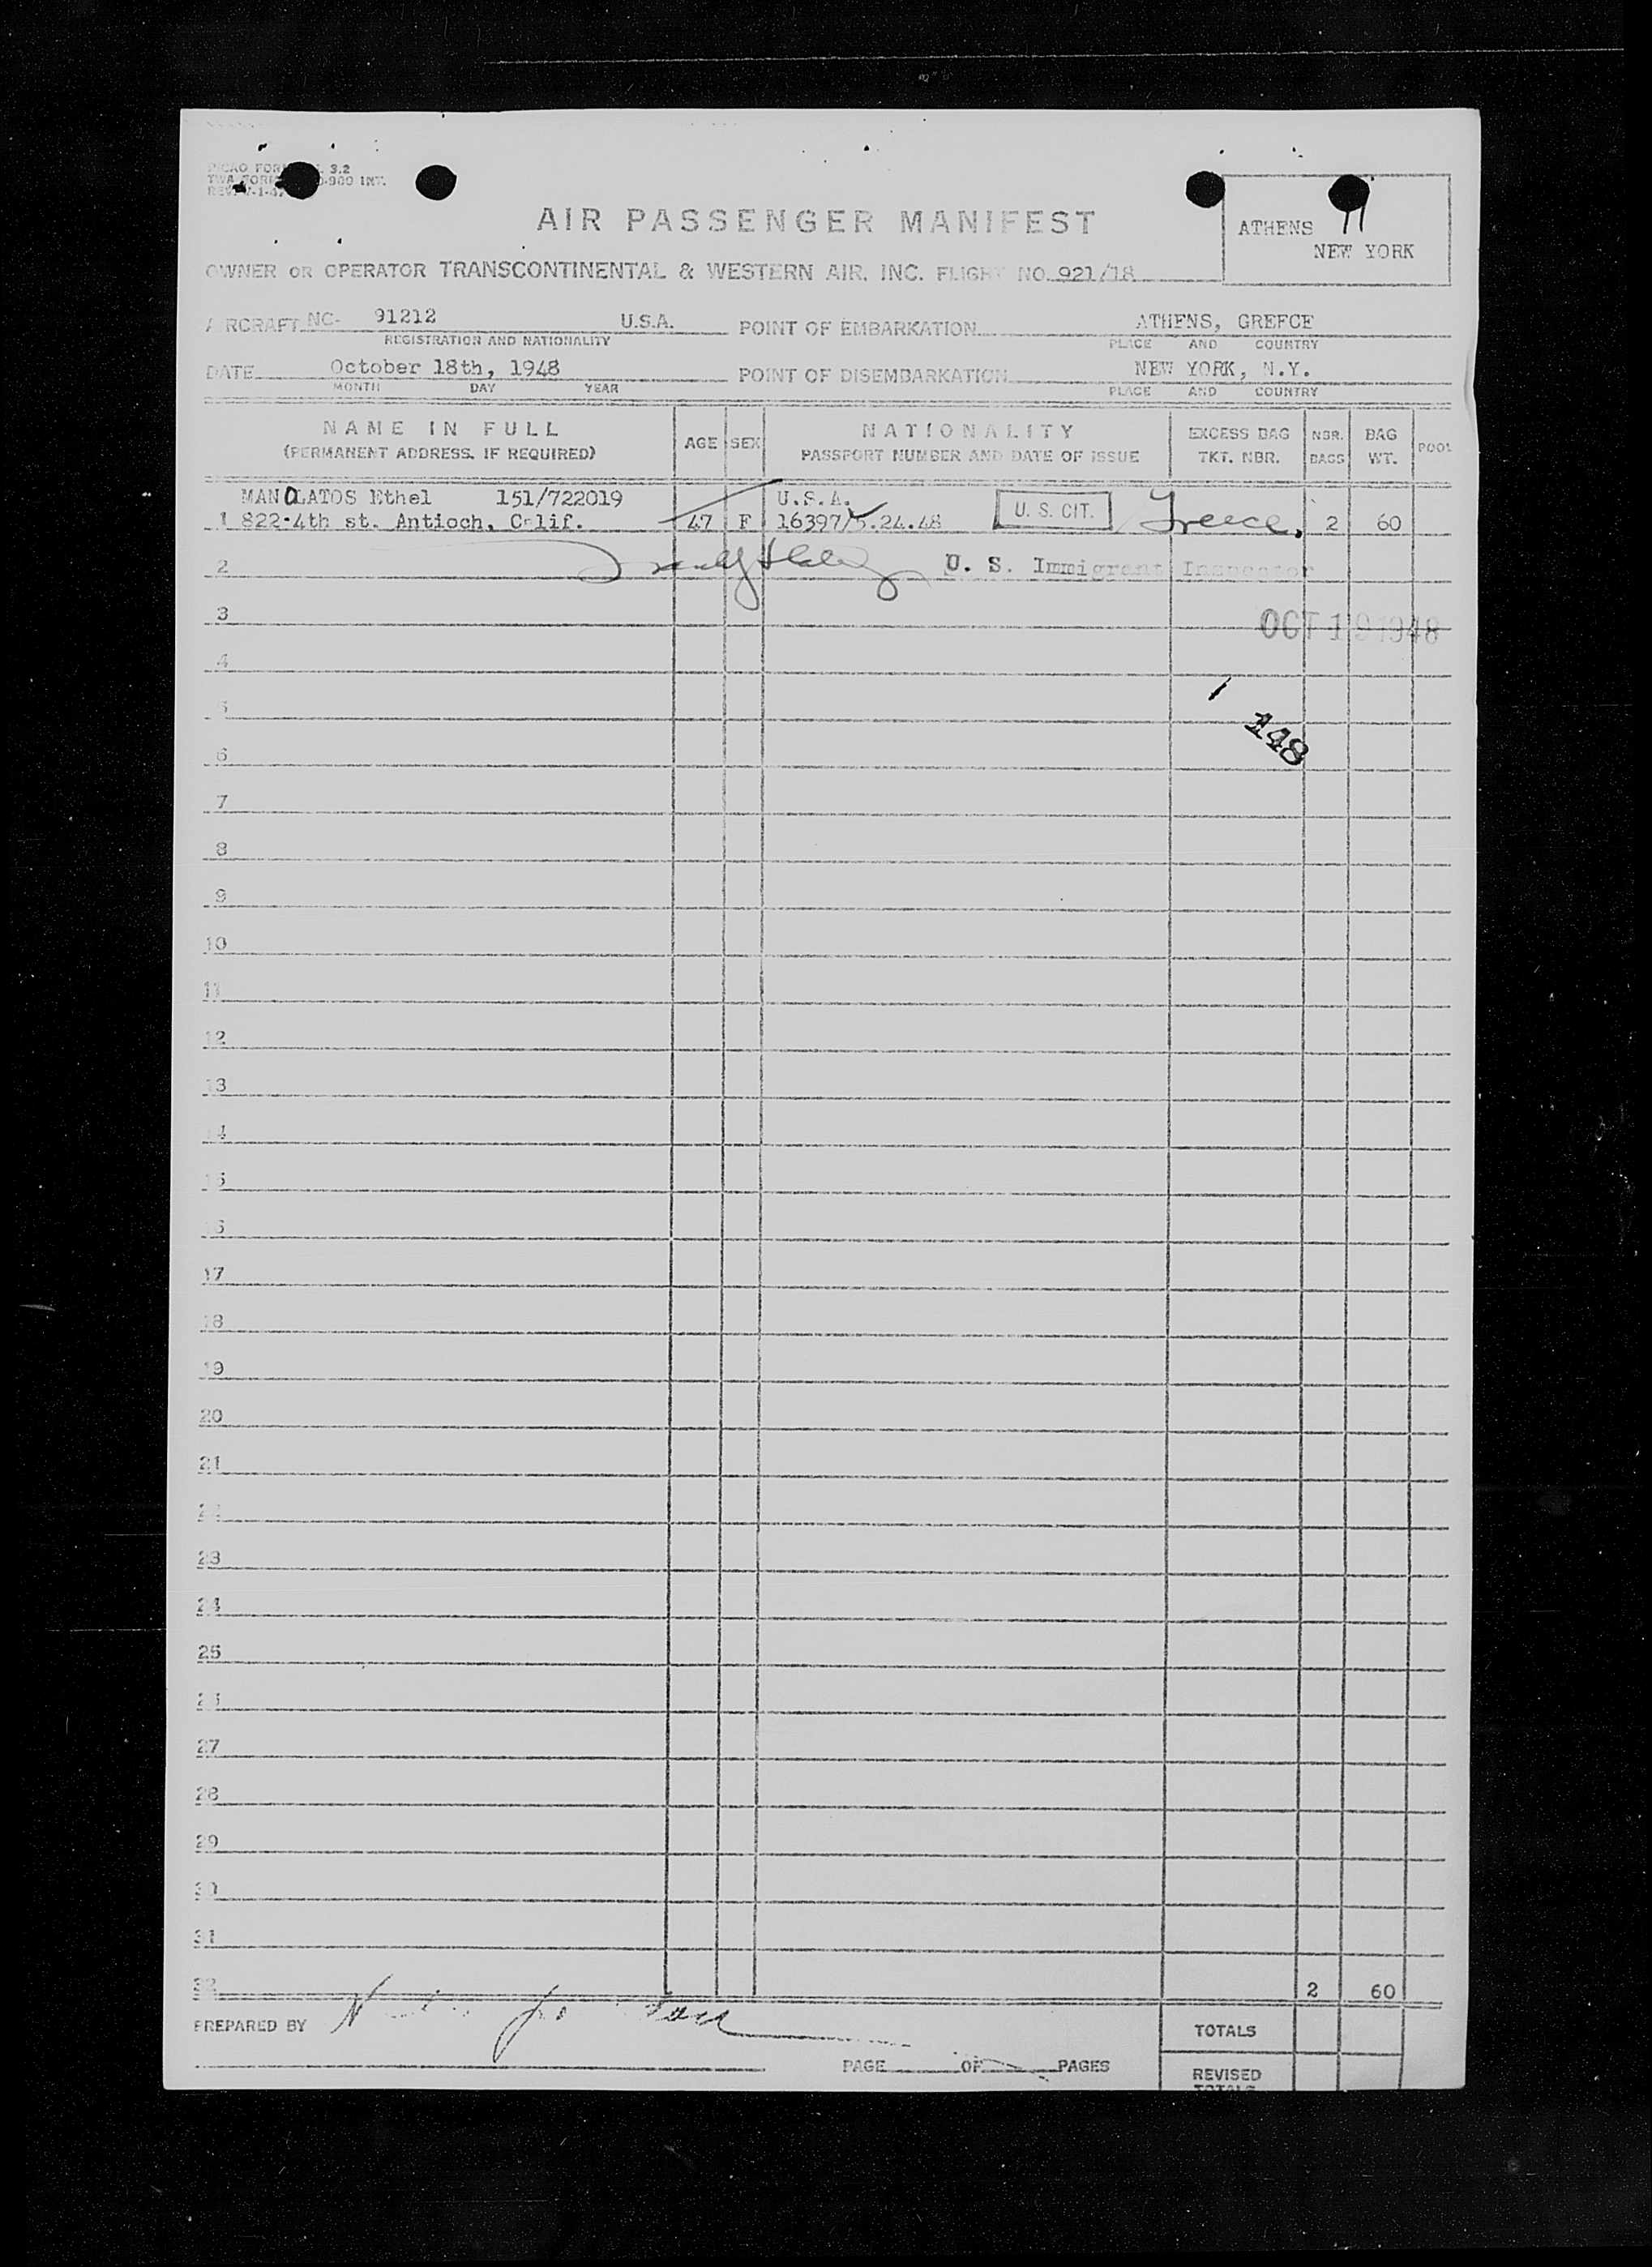 3.2
AIR PASSENGER MANIFEST
ATHENS
NEW YORK
OWNER OR OPERATOR TRANSCONTINENTAL & WESTERN AIR, INC. FLIGHT NO. 921/18
AIRCRAFT NC- 91212 U.S.A. POINT OF EMBARKATION ATHENS, GREECE
REGISTRATION AND NATIONALITY PLACE AND COUNTRY
DATE October 18th, 1948 POINT OF DISEMBARKATION NEW YORK, N.Y.
MONTH DAY YEAR PLACE AND COUNTRY
NAME IN FULL AGE SEX NATIONALITY EXCESS BAG NBR. BAG POOL
(PERMANENT ADDRESS, IF REQUIRED) PASSPORT NUMBER AND DATE OF ISSUE TKT. NBR. BAGS WT.
MANOLATOS Ethel 151/722019 U.S.A.
1 822-4th st. Antioch, Calif. 47 F 16397/5.24.48 U. S. CIT. Greece. 2 60
2 U. S. Immigrant Inspector
3 OCT 19 1948
4
5
148
6
7
8
9
10
11
12
13
14
15
16
17
18
19
20
21
22
23
24
25
26
27
28
29
30
31
32 2 60
PREPARED BY TOTALS
PAGE OF PAGES
REVISED
TOTALS